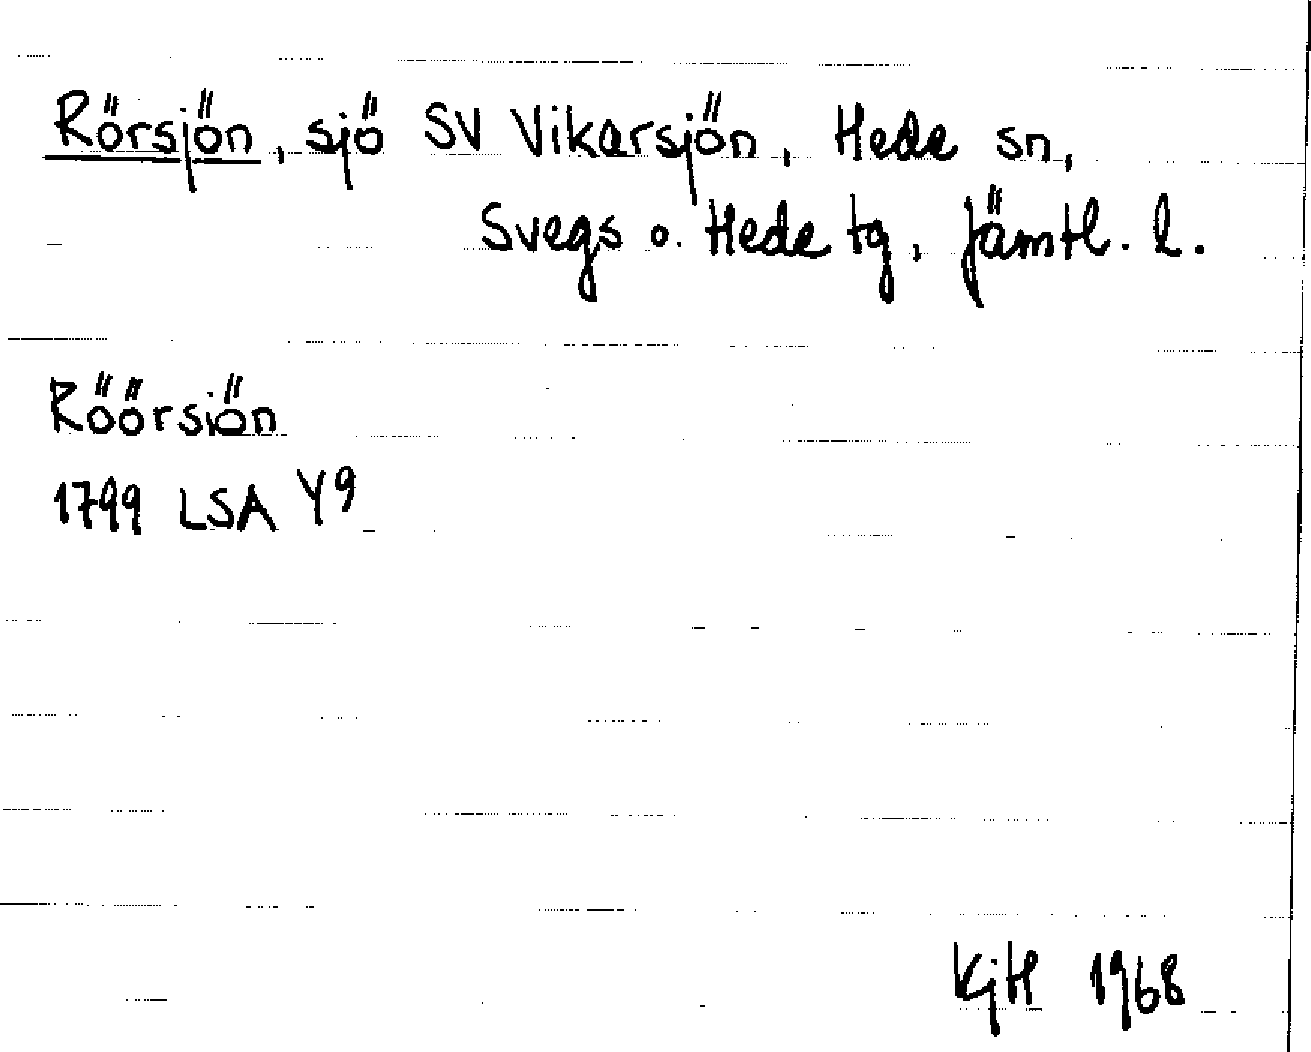 Rörsjön, sjö SV Vikarsjön, Hede sn,
Svegs o. Hede tg, Jämtl. l.
Röörsiön
1799 LSA Y9
KjH 1968